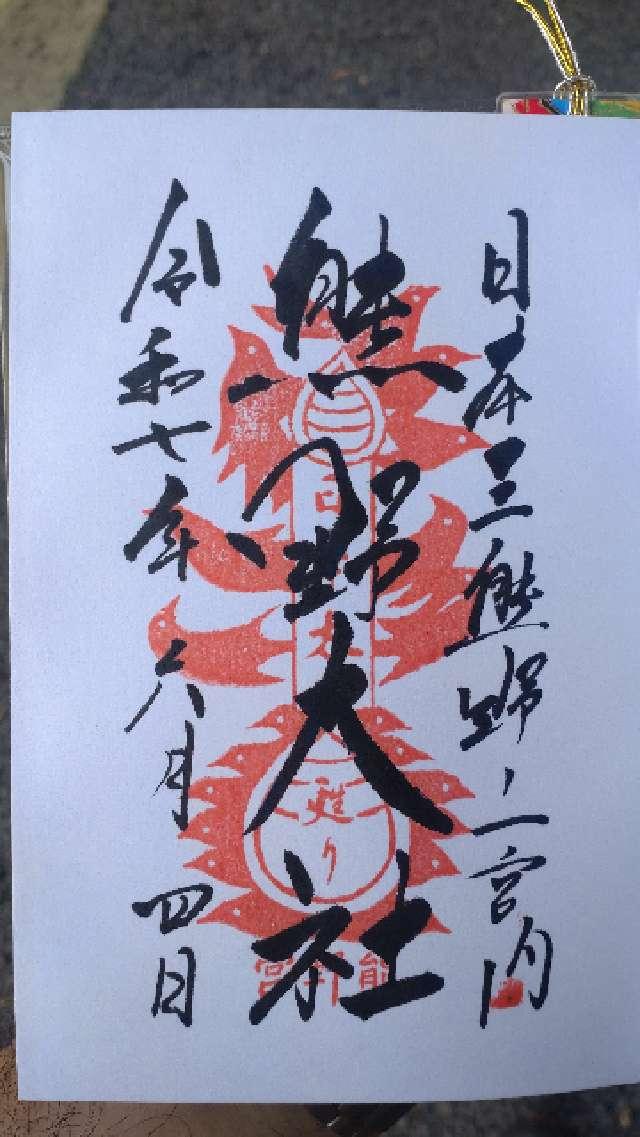 日本三熊野ノ一宮内
熊野大社
甦り
令和七年六月四日